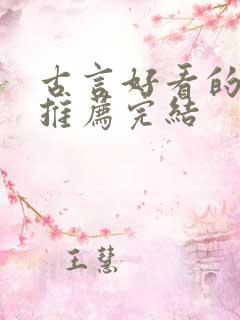 古言好看的
推薦完結
王慧